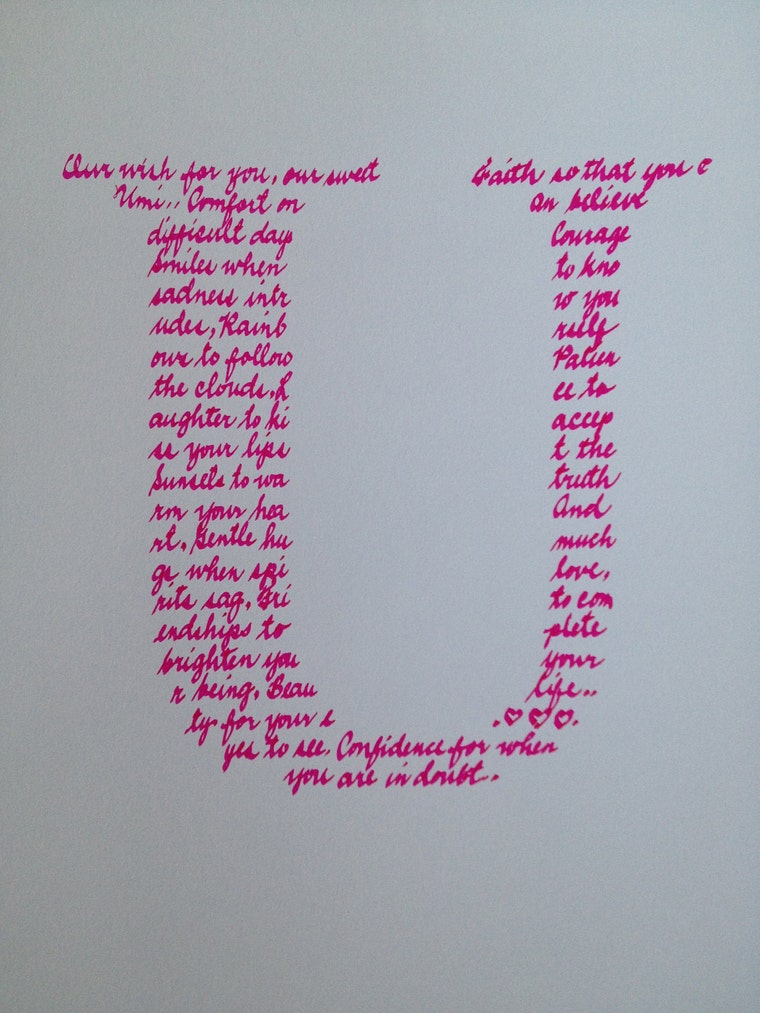 Our wish for you, our sweet
Umi,, Comfort on
difficult days
Smiles when
sadness intr
udes, Rainb
ows to follow
the clouds, L
aughter to ki
ss your lips
Sunsets to wa
rm your hea
rt, Gentle hu
gs when spi
rits sag, Fri
endships to
brighten you
r being, Beau
ty for your e
yes to see, Confidence for when
you are in doubt,
Faith so that you c
an believe
Courage
to kno
w you
rself
Patien
ce to
accep
t the
truth
And
much
love,
to com
plete
your
life..
.♡♡♡.